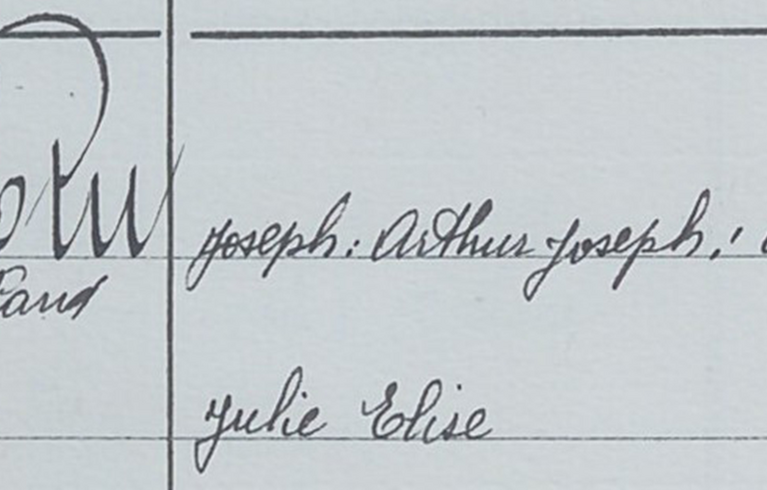 Joseph: Arthur Joseph:
Julie Elise